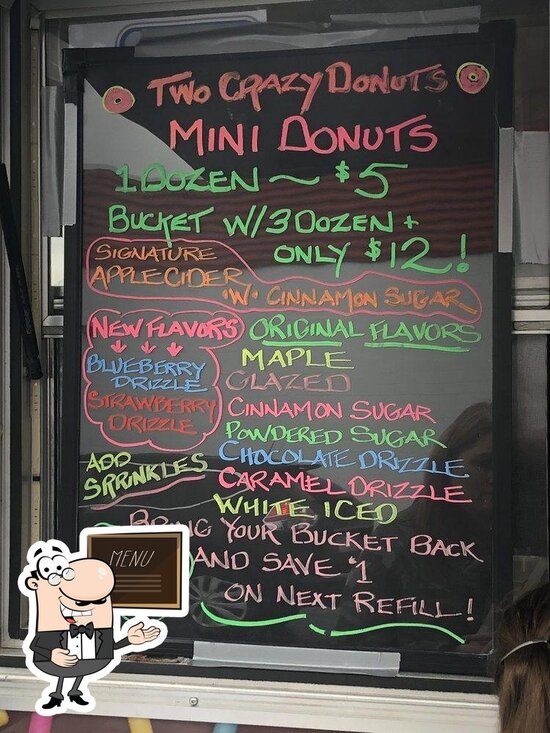 TWO CRAZY DONUTS
MINI DONUTS
1 DOZEN ~ $5
BUCKET W/3 DOZEN +
ONLY $12!
SIGNATURE
APPLE CIDER
"W" CINNAMON SUGAR
NEW FLAVORS
BLUEBERRY
DRIZZLE
STRAWBERRY
DRIZZLE
ADD
SPRINKLES
ORIGINAL FLAVORS
MAPLE
GLAZED
CINNAMON SUGAR
POWDERED SUGAR
CHOCOLATE DRIZZLE
CARAMEL DRIZZLE
WHITE ICED
BRING YOUR BUCKET BACK
AND SAVE $1
ON NEXT REFILL!
MENU